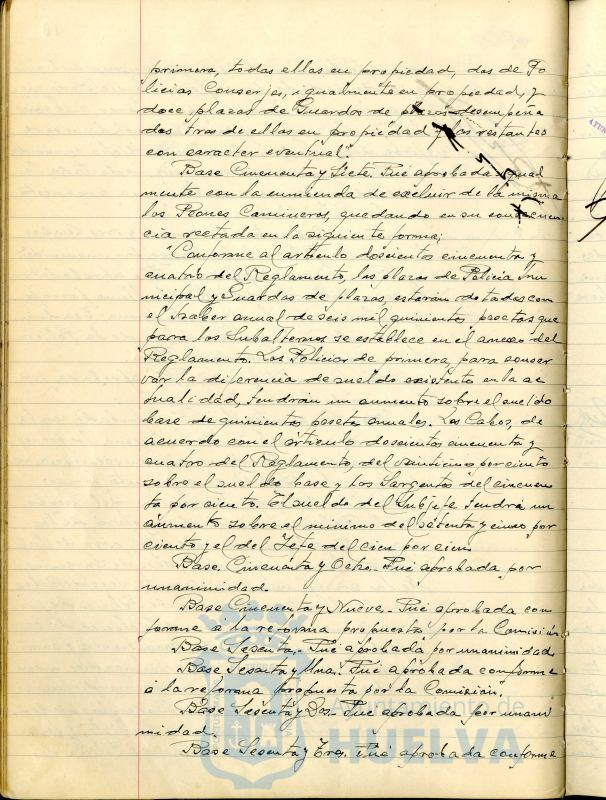 primera, todas ellas en propiedad, dos de Po
licias Conserjes, igualmente en propiedad, y
doce plazas de Guardas de plazas desempeña
das tres de ellas en propiedad y las restantes
con caracter eventual".
Base Cincuenta y Siete. Fué aprobada igual
mente con la enmienda de excluir de la misma
los Peones Camineros, quedando en su consecuen
cia rectada en la siguiente forma;
"Conforme al artículo doscientos cincuenta y
cuatro del Reglamento, las plazas de Policia Mu
nicipal y Guardas de plazas, estarán dotadas con
el haber anual de seis mil quinientas pesetas que
para los Subalternos se establece en el anexo del
Reglamento. Los Policias de primera, para conser
var la diferencia de sueldo existente en la ac
tualidad, tendrán un aumento sobre el sueldo
base de quinientas pesetas anuales. Los Cabos, de
acuerdo con el artículo doscientos cincuenta y
cuatro del Reglamento, del veinticinco por ciento
sobre el sueldo base y los Sargentos del cincuen
ta por ciento. El sueldo del Subjefe tendrá un
aumento sobre el minimo del setenta y cinco por
ciento y el del Jefe del cien por cien
Base Cincuenta y Ocho.- Fué aprobada por
unanimidad.
Base Cincuenta y Nueve.- Fué aprobada con
forme á la reforma propuesta por la Comisión.
Base Sesenta.- Fué aprobada por unanimidad
Base Sesenta y Una.- Fué aprobada conforme
á la reforma propuesta por la Comisión.
Base Sesenta y Dos.- Fué aprobada por unani
midad.
Base Sesenta y Tres. Fué aprobada conforme
Ayuntamiento de
HUELVA